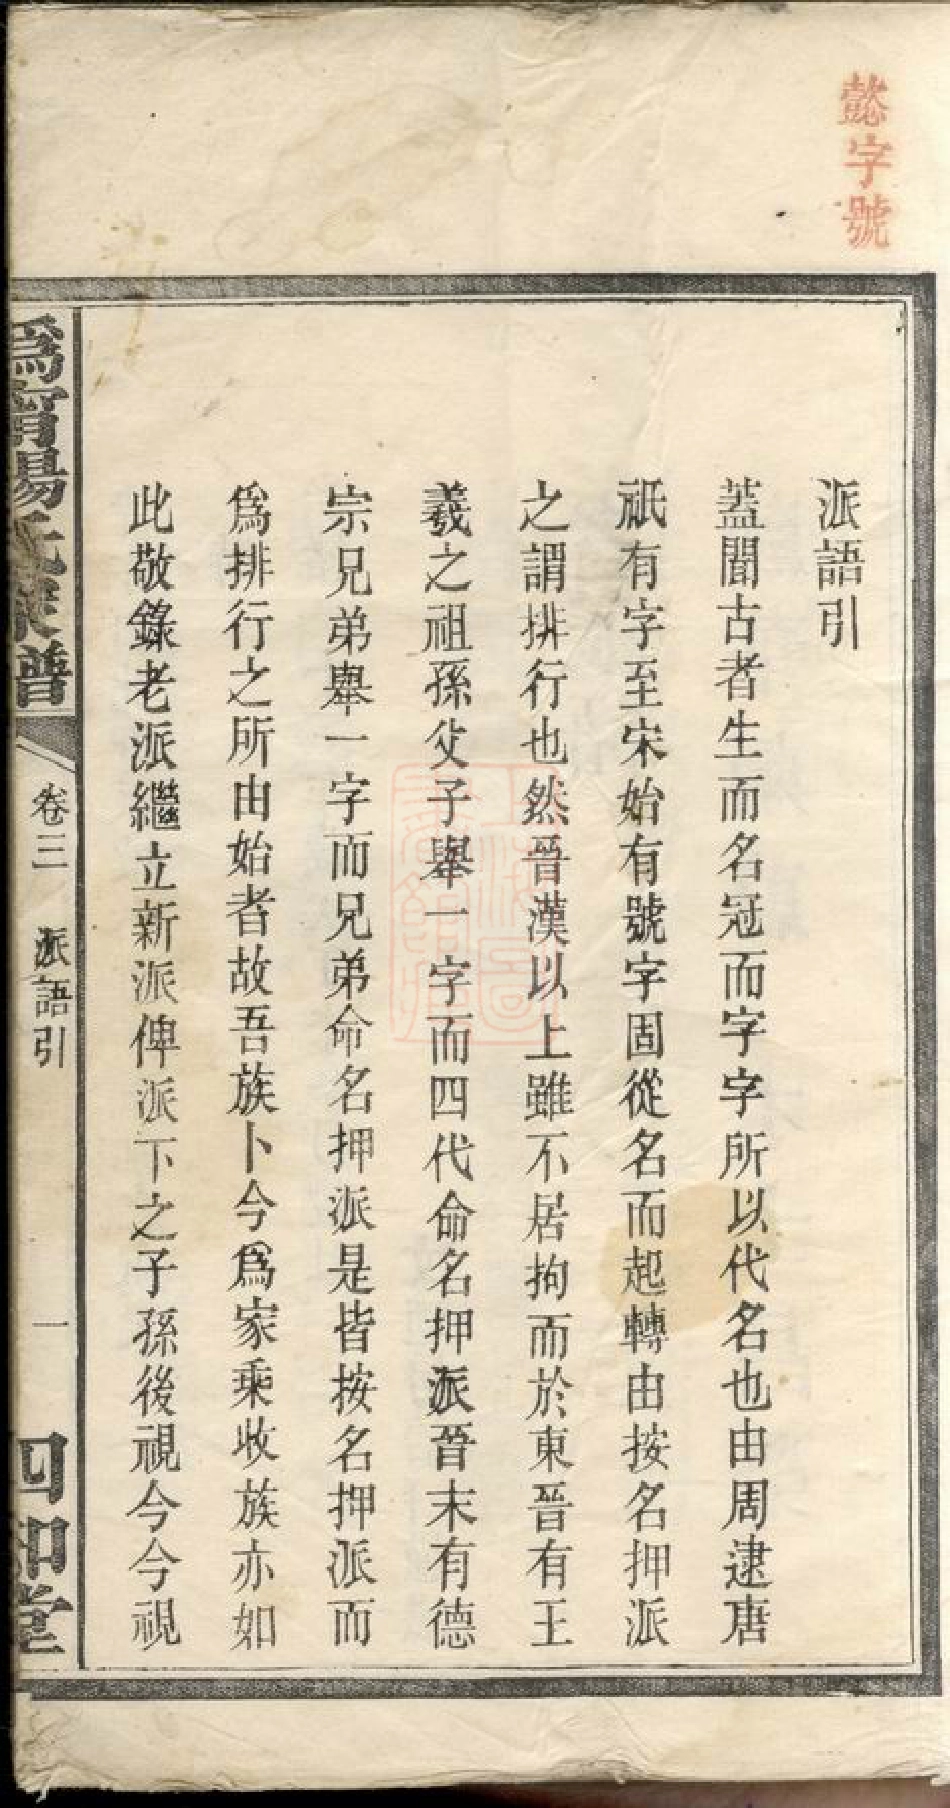 懿字號
派語引
蓋聞古者生而名冠而字字所以代名也由周逮唐
祇有字至宋始有號字固從名而起轉由按名押派
之謂排行也然晉漢以上雖不居拘而於東晉有王
羲之祖孫父子舉一字而四代命名押派晉末有德
宗兄弟舉一字而兄弟命名押派是皆按名押派而
爲排行之所由始者故吾族卜今爲家乘收族亦如
此敬錄老派繼立新派俾派下之子孫後視今今視
爲甯湯氏家譜
卷三
派語引
一
四和堂